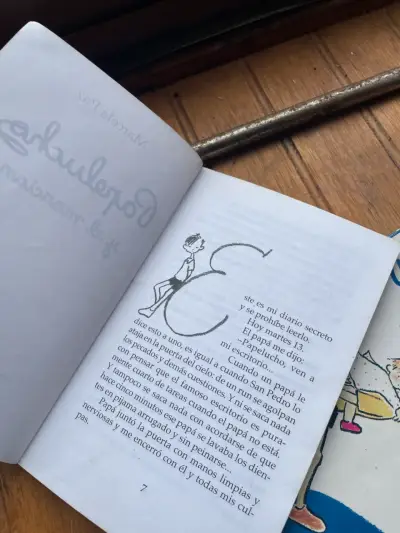 Marcela Paz
Papelucho
y el marciano
Este es mi diario secreto
y se prohíbe leerlo.
Hoy martes 13.
El papá me dijo:
—Papelucho, ven a
mi escritorio...
Cuando un papá le
dice esto a uno, es igual a cuando San Pedro lo
ataja en la puerta del cielo: de un run se agolpan
los pecados y demás cuestiones. Y ni se saca nada
con pensar que el famoso escritorio es pura-
mente cuarto de tareas cuando el papá no está.
Y tampoco se saca nada con acordarse de que
hace cinco minutos ese papá se lavaba los dien-
tes en pijama arrugado y sin peinarse...
Papá juntó la puerta con manos limpias y
nerviosas y me encerró con él y todas mis cul-
pas.
7